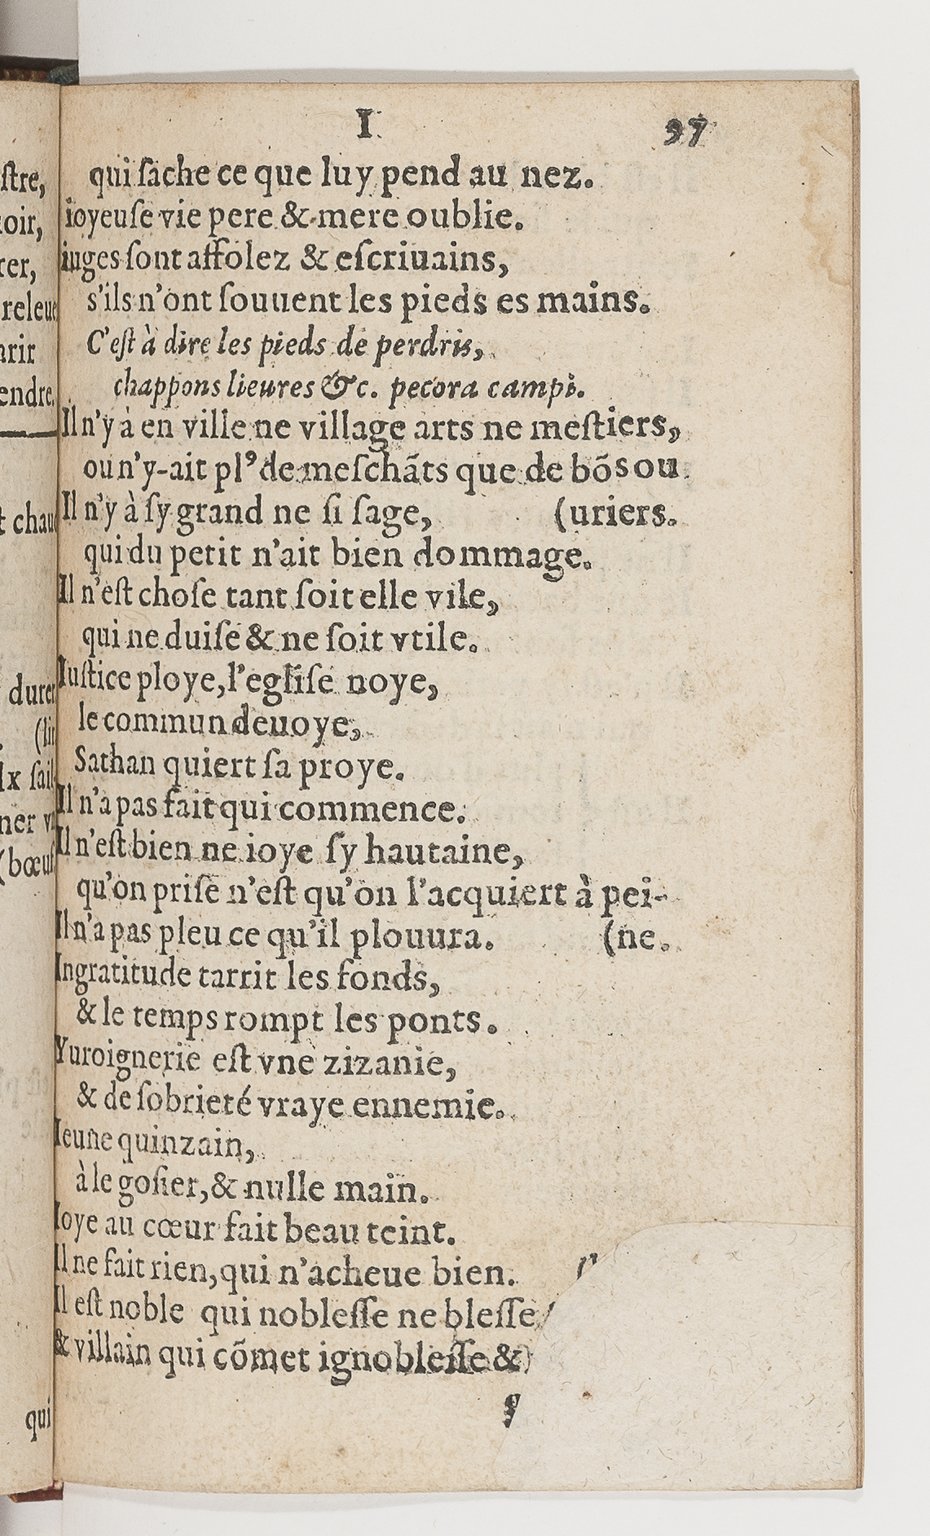 I 97
qui ſache ce que luy pend au nez.
ioyeuſe vie pere & mere oublie.
iuges ſont affolez & eſcriuains,
s'ils n'ont ſouuent les pieds es mains.
C'eſt à dire les pieds de perdris,
chappons lieures &c. pecora campi.
Il n'y à en ville ne village arts ne meſtiers,
ou n'y-ait plꝰ de meſchãts que de bõs ou
Il n'y à ſy grand ne ſi ſage, (uriers.
qui du petit n'ait bien dommage.
Il n'eſt choſe tant ſoit elle vile,
qui ne duiſe & ne ſoit vtile.
Iuſtice ploye, l'egliſe noye,
le commun deuoye,
Sathan quiert ſa proye.
Il n'a pas fait qui commence.
Il n'eſt bien ne ioye ſy hautaine,
qu'on priſe n'eſt qu'on l'acquiert à pei-
Il n'a pas pleu ce qu'il plouura. (ne.
Ingratitude tarrit les fonds,
& le temps rompt les ponts.
Yuroignerie eſt vne zizanie,
& de ſobrieté vraye ennemie.
Ieune quinzain,
à le goſier, & nulle main.
Ioye au cœur fait beau teint.
Il ne fait rien, qui n'acheue bien.
Il eſt noble qui nobleſſe ne bleſſe
& villain qui cõmet ignobleſſe &
ſtre,
oir,
rer,
releue
arir
endre.
t chau
durer
(lir
lx ſail
ner v
(bœuf
qui